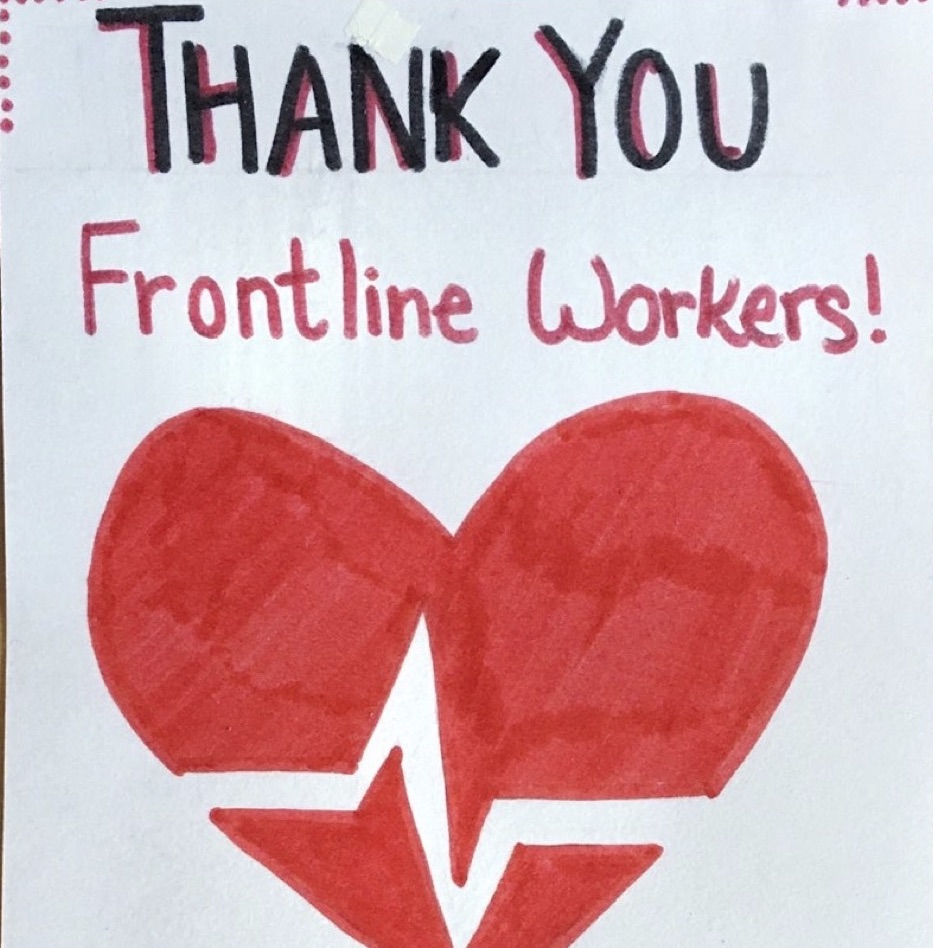 THANK YOU
Frontline Workers!